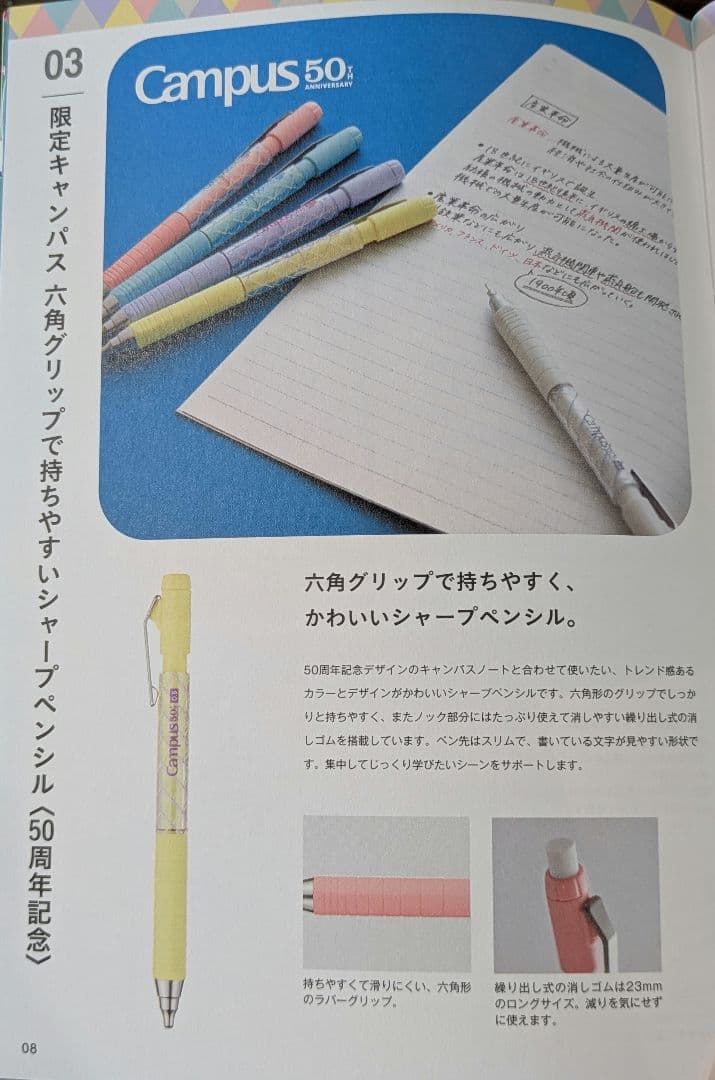 03
限定キャンパス 六角グリップで持ちやすいシャープペンシル〈50周年記念〉
Campus 50TH
ANNIVERSARY
産業革命
産業革命
・18世紀にイギリスで誕生
・産業革命の広がり
1900年頃
六角グリップで持ちやすく、
かわいいシャープペンシル。
50周年記念デザインのキャンパスノートと合わせて使いたい、トレンド感ある
カラーとデザインがかわいいシャープペンシルです。六角形のグリップでしっか
りと持ちやすく、またノック部分にはたっぷり使えて消しやすい繰り出し式の消
しゴムを搭載しています。ペン先はスリムで、書いている文字が見やすい形状で
す。集中してじっくり学びたいシーンをサポートします。
Campus 50TH 0.3
持ちやすくて滑りにくい、六角形
のラバーグリップ。
繰り出し式の消しゴムは23mm
のロングサイズ。減りを気にせず
に使えます。
08